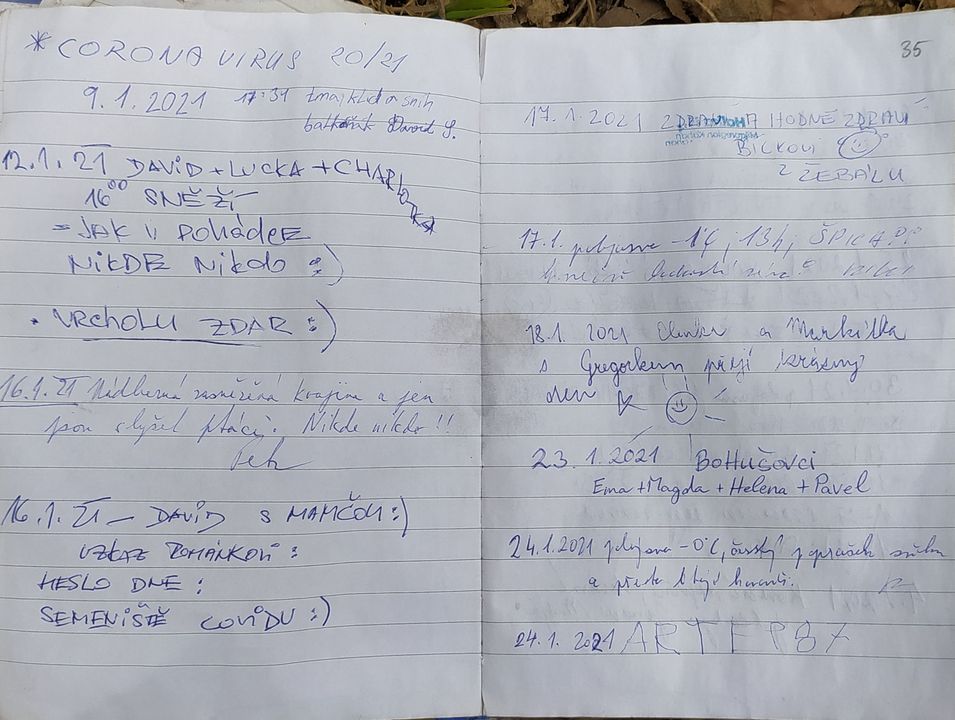 * CORONA VIRUS 20/21
9.1.2021 17:31
David S.
12.1.21 DAVID + LUCKA + CHARLOTKA
16⁰⁰ SNĚŽÍ
= JAK V POHÁDCE
NIKDE NIKDO :)
• VRCHOLU ZDAR :)
16.1.21 Nádherná zasněžená krajina a jen
jsou slyšet ptáci. Nikde nikdo !!
16.1.21 — DAVID S MAMČOU :)
VZKAZ ROMÁNKOVI :
HESLO DNE :
SEMENIŠTĚ COVIDU :)
35
17.1.2021 A HODNĚ ZDRAVÍ
BÍCKOVI
Z ŽEBÁLU
17.1. -1°C, 13h, ŠPICA??
18.1. 2021 Elenka a Markétka
s Gregorkem přejí krásný
den
23.1.2021 BOHUŠOVCI
Ema + Magda + Helena + Pavel
24.1.2021 -0°C, čerstvý poprašek sněhu
a přesto
24.1.2021 ARTEP87